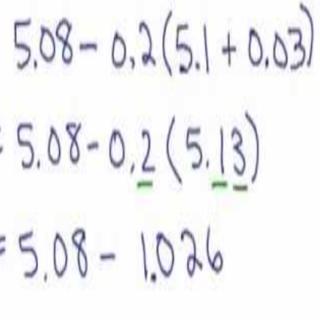 5.08 - 0.2(5.1 + 0.03)
= 5.08 - 0.2(5.13)
= 5.08 - 1.026